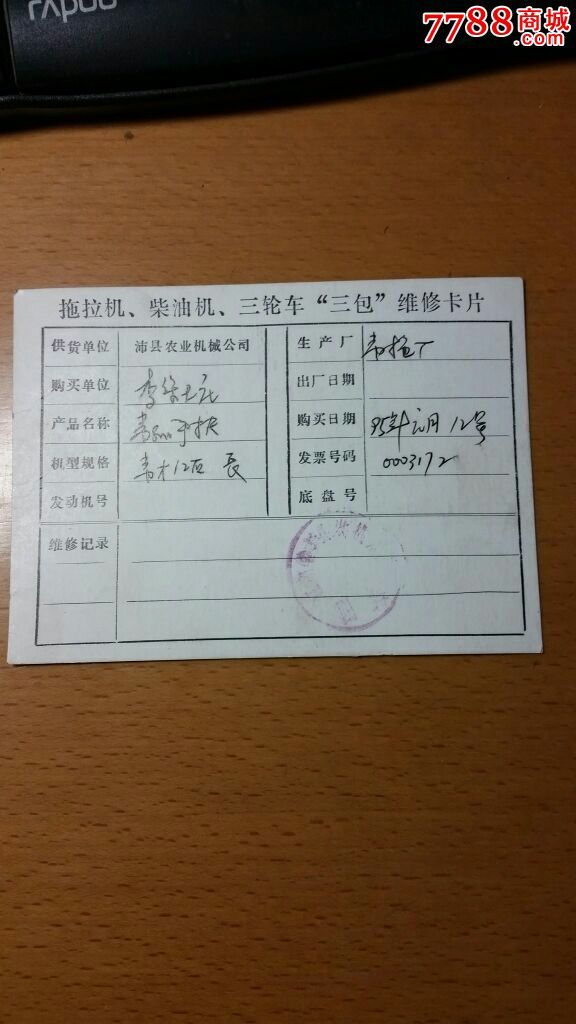 rapoo
7788商城
.com
拖拉机、柴油机、三轮车“三包”维修卡片
供货单位 沛县农业机械公司
购买单位
产品名称 手扶
机型规格
发动机号
生产厂
出厂日期
购买日期 95年元月12号
发票号码 0003172
底盘号
维修记录